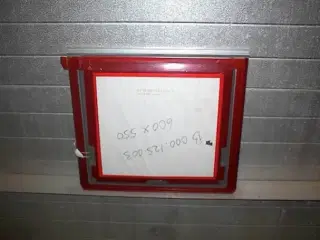 B 000.125.003
600 x 550